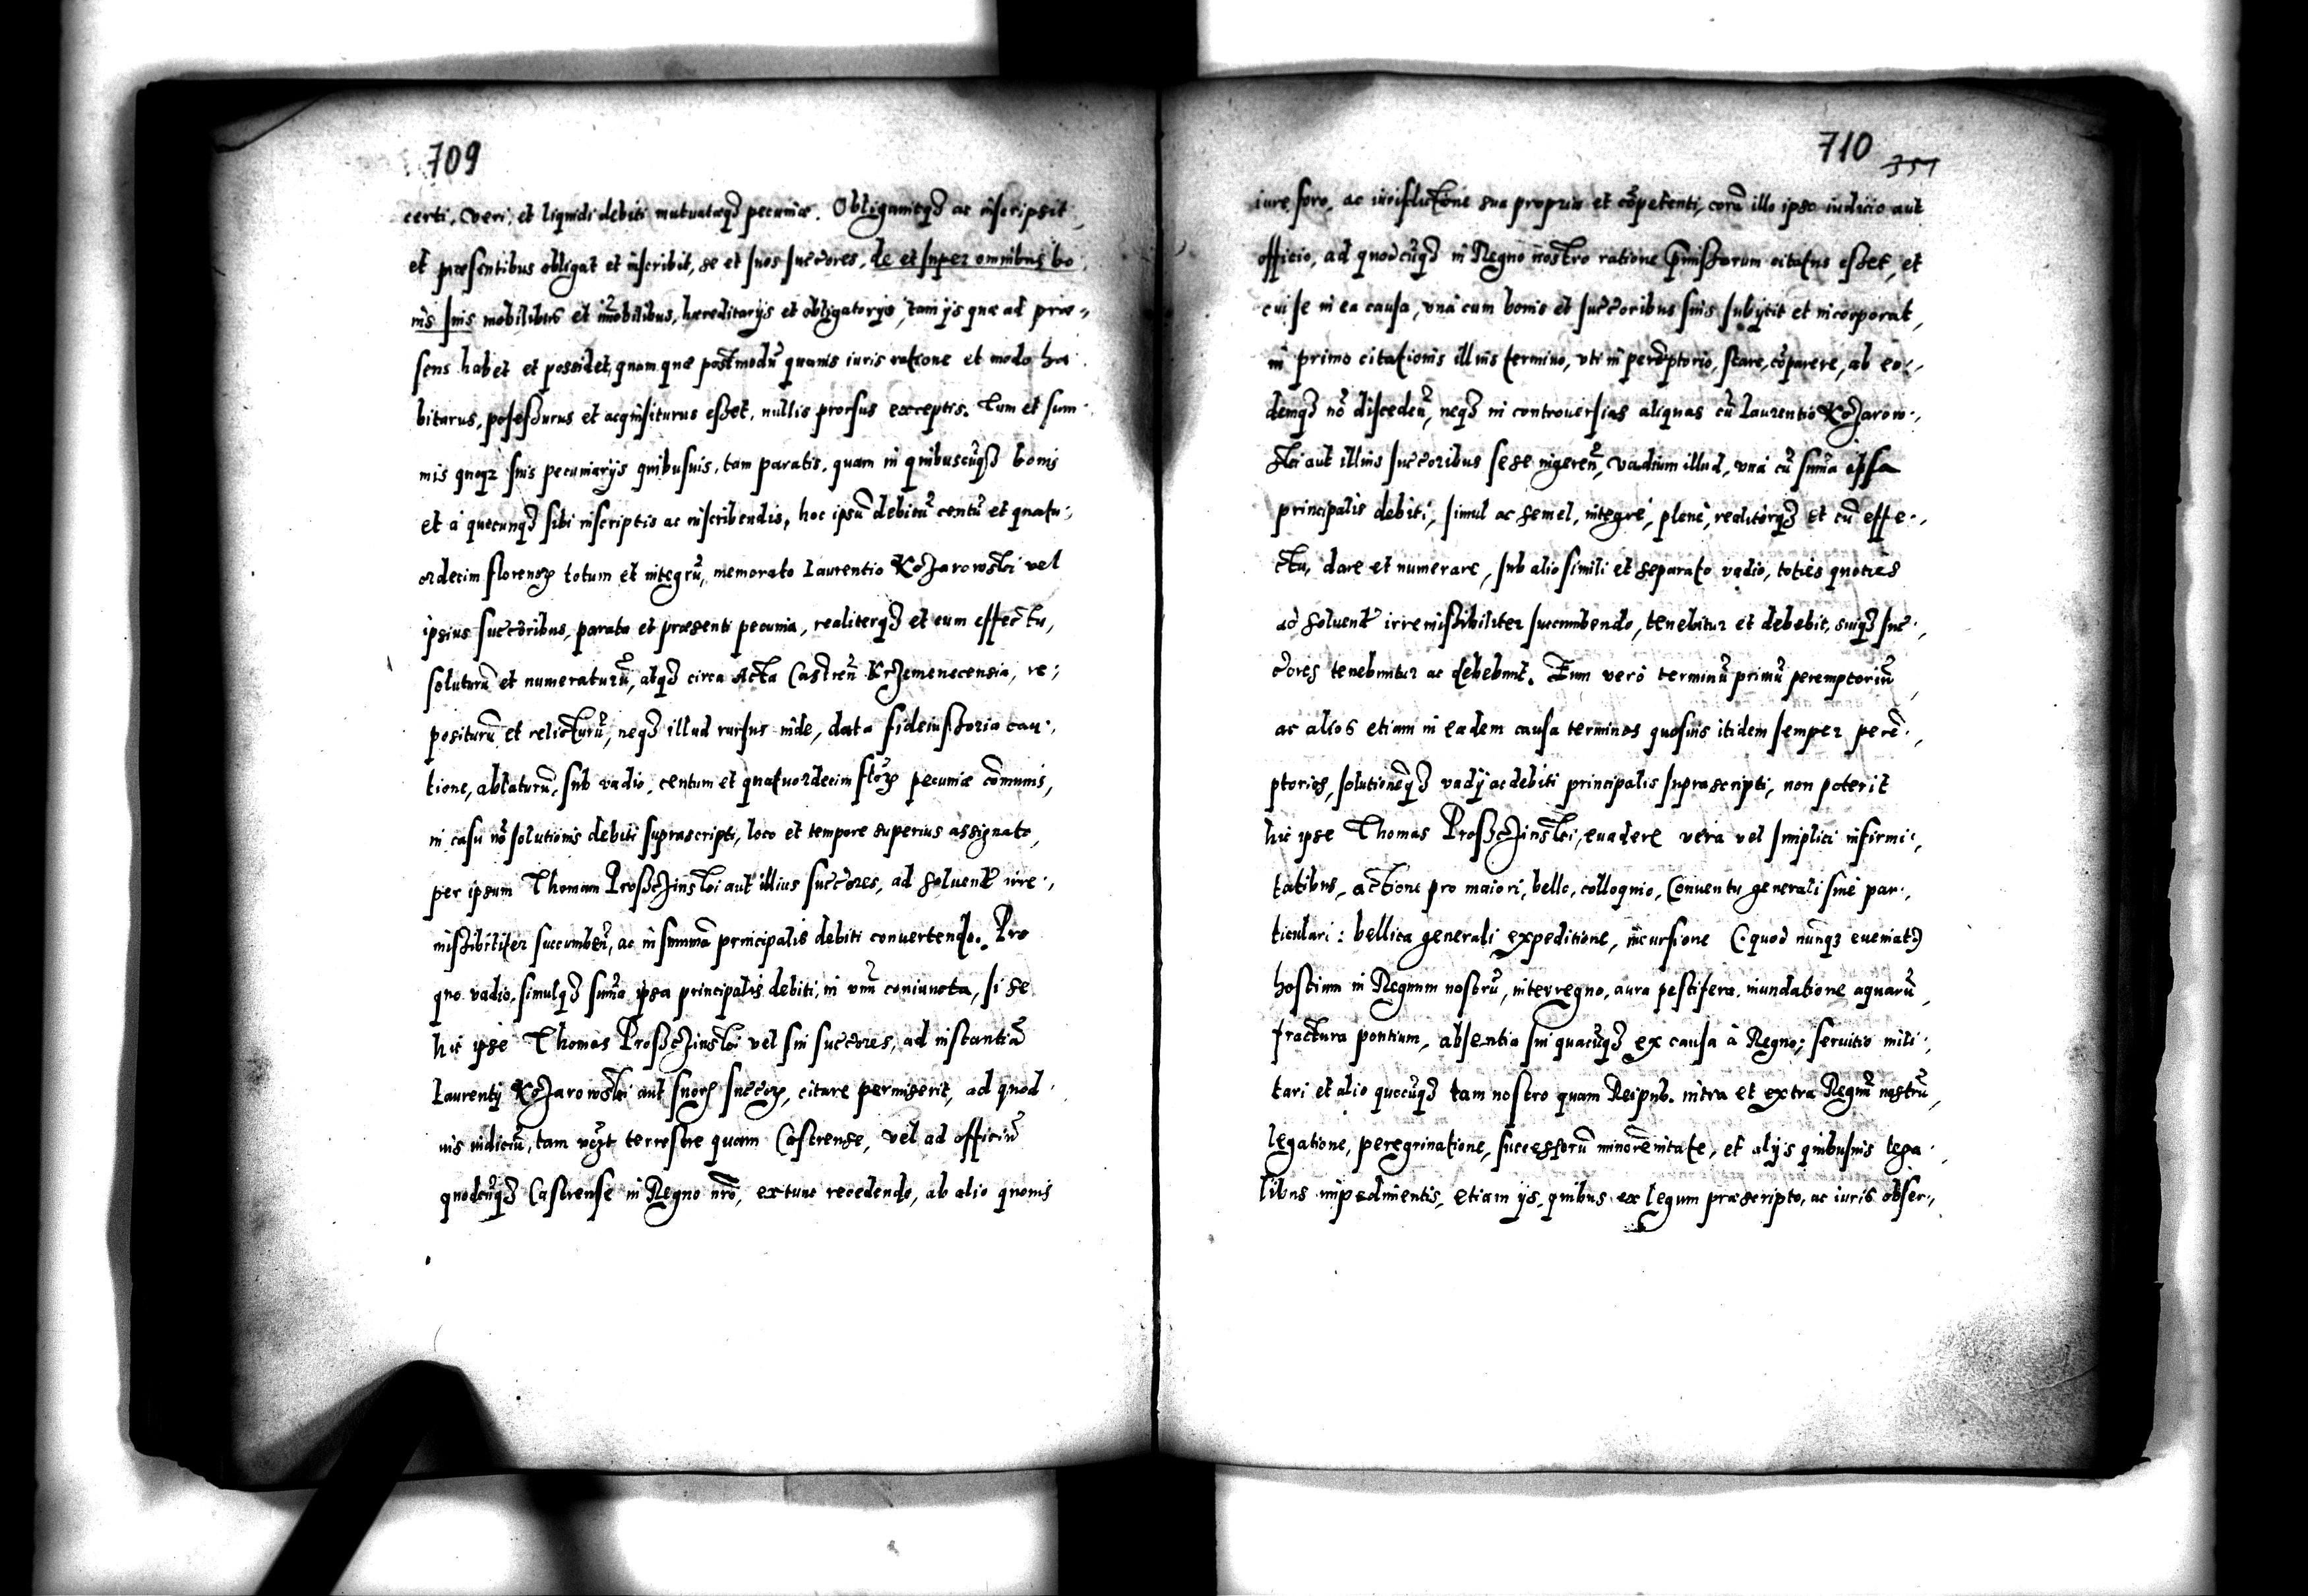 709
certi, veri, et liquidi debiti mutuatæq₃ pecuniæ. Obligauitq₃ ac inscripsit,
et præsentibus obligat et inscribit, se et suos succ̃ores, de et super omnibus bo
nis suis mobilibus et im̃obilibus, hæreditarijs et obligatorijs, tam ijs quæ ad præ,,
sens habet et possidet, quam quæ postmodũ quouis iuris ratione et modo ha
biturus, posessurus et acquisiturus esset, nullis prorsus exceptis. Tum et sum
mis quoq₃ suis pecuniarijs quibusuis, tam paratis, quam in quibuscũq₃ bonis
et a quocunq₃ sibi inscriptis ac inscribendis, hoc ipsũ debitũ centũ et quatu,
ordecim florenoꝝ totum et integrũ, memorato Laurentio Kozarowski vel
ipsius succ̃oribus, parata et præsenti pecunia, realiterq₃ et cum effectu,
soluturũ et numeraturũ, atq₃ circa Acta Castreñ Krzemenecensia, re,
positurũ et relicturũ, neq₃ illud rursus inde, data fideiussoria cau,
tione, ablaturũ, sub vadio, centum et quatuordecim floꝝ pecuniæ cõmunis,
in casu nõ solutionis debiti suprascripti, loco et tempore superius assignato,
per ipsum Thomam Proszczinski aut illius succ̃ores, ad soluend̃ irre,
missibiliter succumbeñ, ac in summã principalis debiti convertendo. Pro
quo vadio, simulq₃ sum̃a ipsa principalis debiti, in vnũ coniuncta, si se
hic ipse Thomas Proszczinski vel sui succ̃ores, ad instantiã
Laurentij Kozarowski aut suoꝝ succ̃oꝝ, citare permiserit, ad quod
uis iudiciũ, tam vc₃t terrestre quam Castrense, vel ad officiũ
quodcũq₃ Castrense in Regno nr̃o, extunc recedendo, ab alio quouis
710
351
iure, foro, ac iurisdictione sua propria et cõpetenti, corã illo ipso iudicio aut
officio, ad quodcũq₃ in Regno nostro ratione p̃missorum citatus esset, et
cui se in ea causa, vná cum bonis et succ̃oribus suis subijcit et incorporat,
in primo citationis illius termino, vti in perẽptorio, stare, cõparere, ab eo,
demq₃ nõ discedeñ, neq₃ in controuersias aliquas cũ Laurentio Kozarow,
ski aut illius succ̃oribus sese ingereñ, vadium illud, vná cũ sum̃a ipsa
principalis debiti, simul ac semel, integrè, plenè, realiterq₃ et cũ effe,
ctu, dare et numerare, sub alio simili et separato vadio, toties quoties
ad soluend̃ irremissibiliter succumbendo, tenebitur et debebit, suiq₃ suc̃,
c̃ores tenebuntur ac debebunt. Eum verò terminũ primũ peremptoriũ,
ac alios etiam in eadem causa terminos quosuis itidem semper perẽ,
ptorios, solutionẽq₃ vadij ac debiti principalis suprascripti, non poterit
hic ipse Thomas Proszczinski, euadere vera vel simplici infirmi,
tatibus, actione pro maiori, bello, colloquio, Conuentu generali siuè par,
ticulari: bellica generali expeditione, incursione (:quod nunq₃ eueniat:)
hostium in Regnum nostrũ, interregno, aura pestifera, inundatione aquarũ,
fractura pontium, absentia sui quacũq₃ ex causa à Regno; seruitio mili,
tari et alio quocũq₃ tam nostro quam Reipub. intra et extra Regnũ nostrũ,
legatione, peregrinatione, successorũ minorẽnitate, et alijs quibusuis lega,
libus impedimentis, etiam ijs, quibus ex legum præscripto, ac iuris obser,